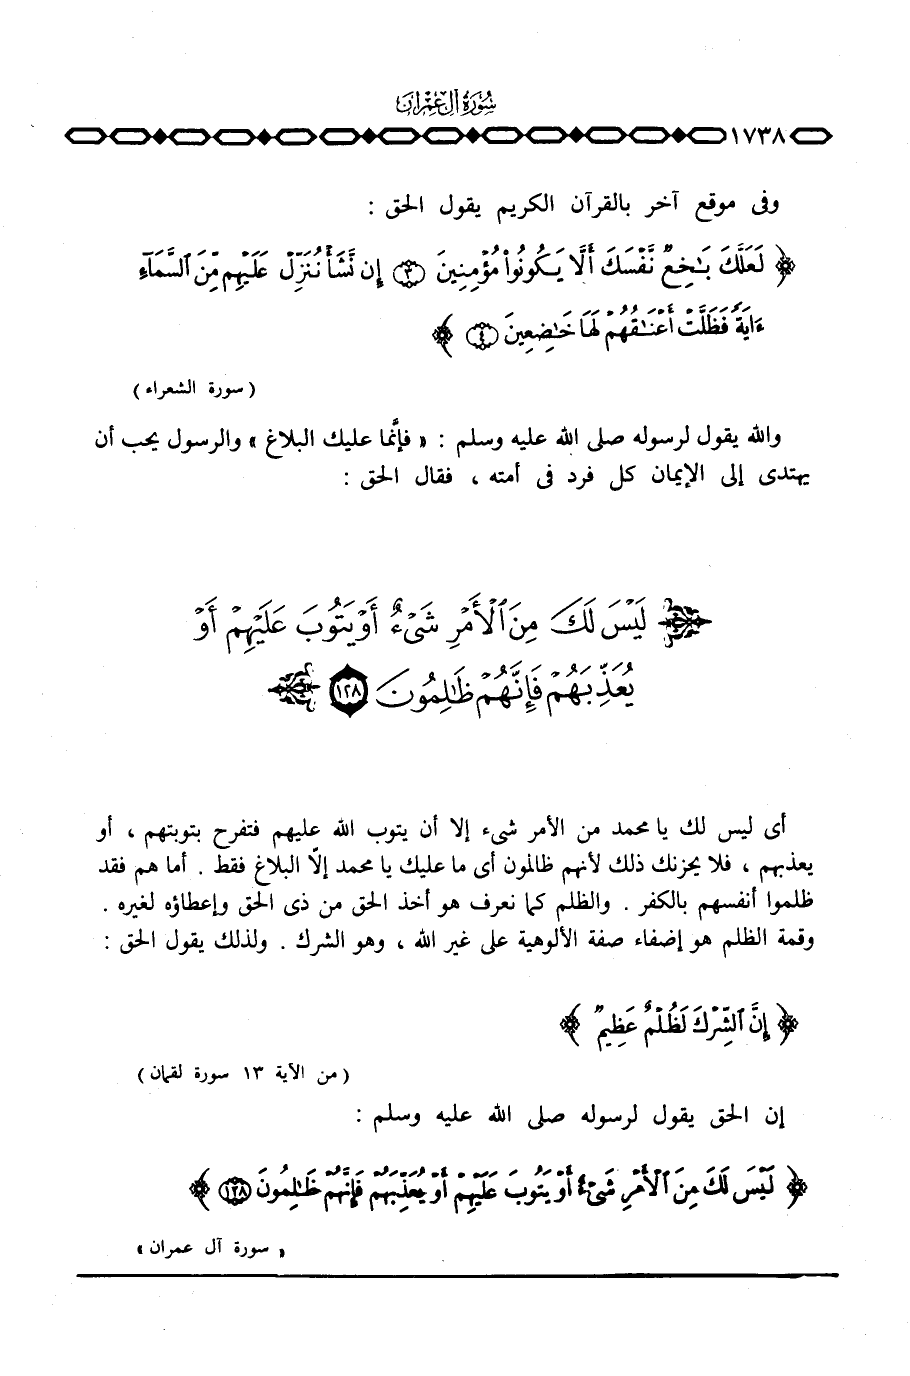 سُورَةُ آلِ عِمْرَانَ
١٧٣٨
وفى موقع آخر بالقرآن الكريم يقول الحق :
﴿ لَعَلَّكَ بَـٰخِعٌ نَّفْسَكَ أَلَّا يَكُونُوا۟ مُؤْمِنِينَ ﴿٣﴾ إِن نَّشَأْ نُنَزِّلْ عَلَيْهِم مِّنَ ٱلسَّمَآءِ
ءَايَةً فَظَلَّتْ أَعْنَـٰقُهُمْ لَهَا خَـٰضِعِينَ ﴿٤﴾ ﴾
( سورة الشعراء )
والله يقول لرسوله صلى الله عليه وسلم : « فإنَّما عليك البلاغ » والرسول يحب أن
يهتدى إلى الإيمان كل فرد فى أمته ، فقال الحق :
﴿ لَيْسَ لَكَ مِنَ ٱلْأَمْرِ شَىْءٌ أَوْ يَتُوبَ عَلَيْهِمْ أَوْ
يُعَذِّبَهُمْ فَإِنَّهُمْ ظَـٰلِمُونَ ﴿١٢٨﴾ ﴾
أى ليس لك يا محمد من الأمر شىء إلا أن يتوب الله عليهم فتفرح بتوبتهم ، أو
يعذبهم ، فلا يحزنك ذلك لأنهم ظالمون أى ما عليك يا محمد إلّا البلاغ فقط . أما هم فقد
ظلموا أنفسهم بالكفر . والظلم كما نعرف هو أخذ الحق من ذى الحق وإعطاؤه لغيره .
وقمة الظلم هو إضفاء صفة الألوهية على غير الله ، وهو الشرك . ولذلك يقول الحق :
﴿ إِنَّ ٱلشِّرْكَ لَظُلْمٌ عَظِيمٌ ﴾
( من الآية ١٣ سورة لقمان )
إن الحق يقول لرسوله صلى الله عليه وسلم :
﴿ لَيْسَ لَكَ مِنَ ٱلْأَمْرِ شَىْءٌ أَوْ يَتُوبَ عَلَيْهِمْ أَوْ يُعَذِّبَهُمْ فَإِنَّهُمْ ظَـٰلِمُونَ ﴿١٢٨﴾ ﴾
« سورة آل عمران »